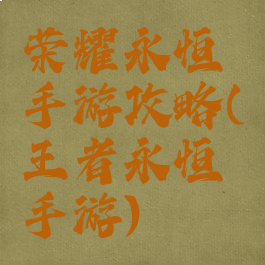 荣耀永恒
手游攻略(
王者永恒
手游)